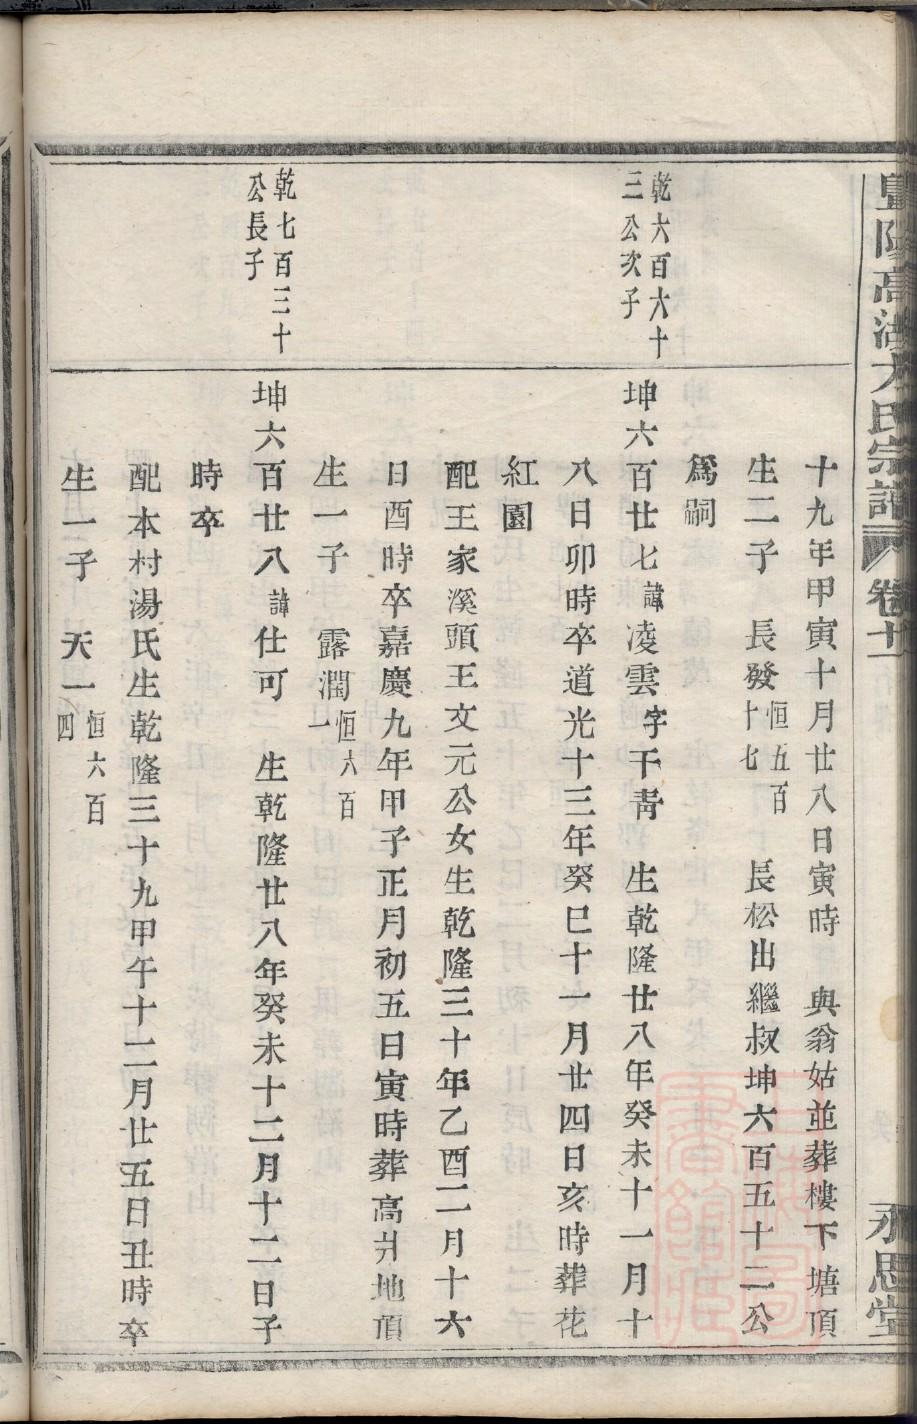 暨陽高湖方氏宗譜 卷十二 永思堂
十九年甲寅十月廿八日寅時 與翁姑並葬樓下塘頂
生二子 長發恒五百十七 長松出繼叔坤六百五十二公
爲嗣
乾六百六十三公次子
坤六百廿七諱凌雲字干靑 生乾隆廿八年癸未十一月十
八日卯時卒道光十三年癸巳十一月廿四日亥時葬花
紅園
配王家溪頭王文元公女生乾隆三十年乙酉二月十六
日酉時卒嘉慶九年甲子正月初五日寅時葬高爿地頂
生一子 露潤恒六百一
乾七百三十公長子
坤六百廿八諱仕可 生乾隆廿八年癸未十二月十二日子
時卒
配本村湯氏生乾隆三十九甲午十二月廿五日丑時卒
生一子 天一恒六百四